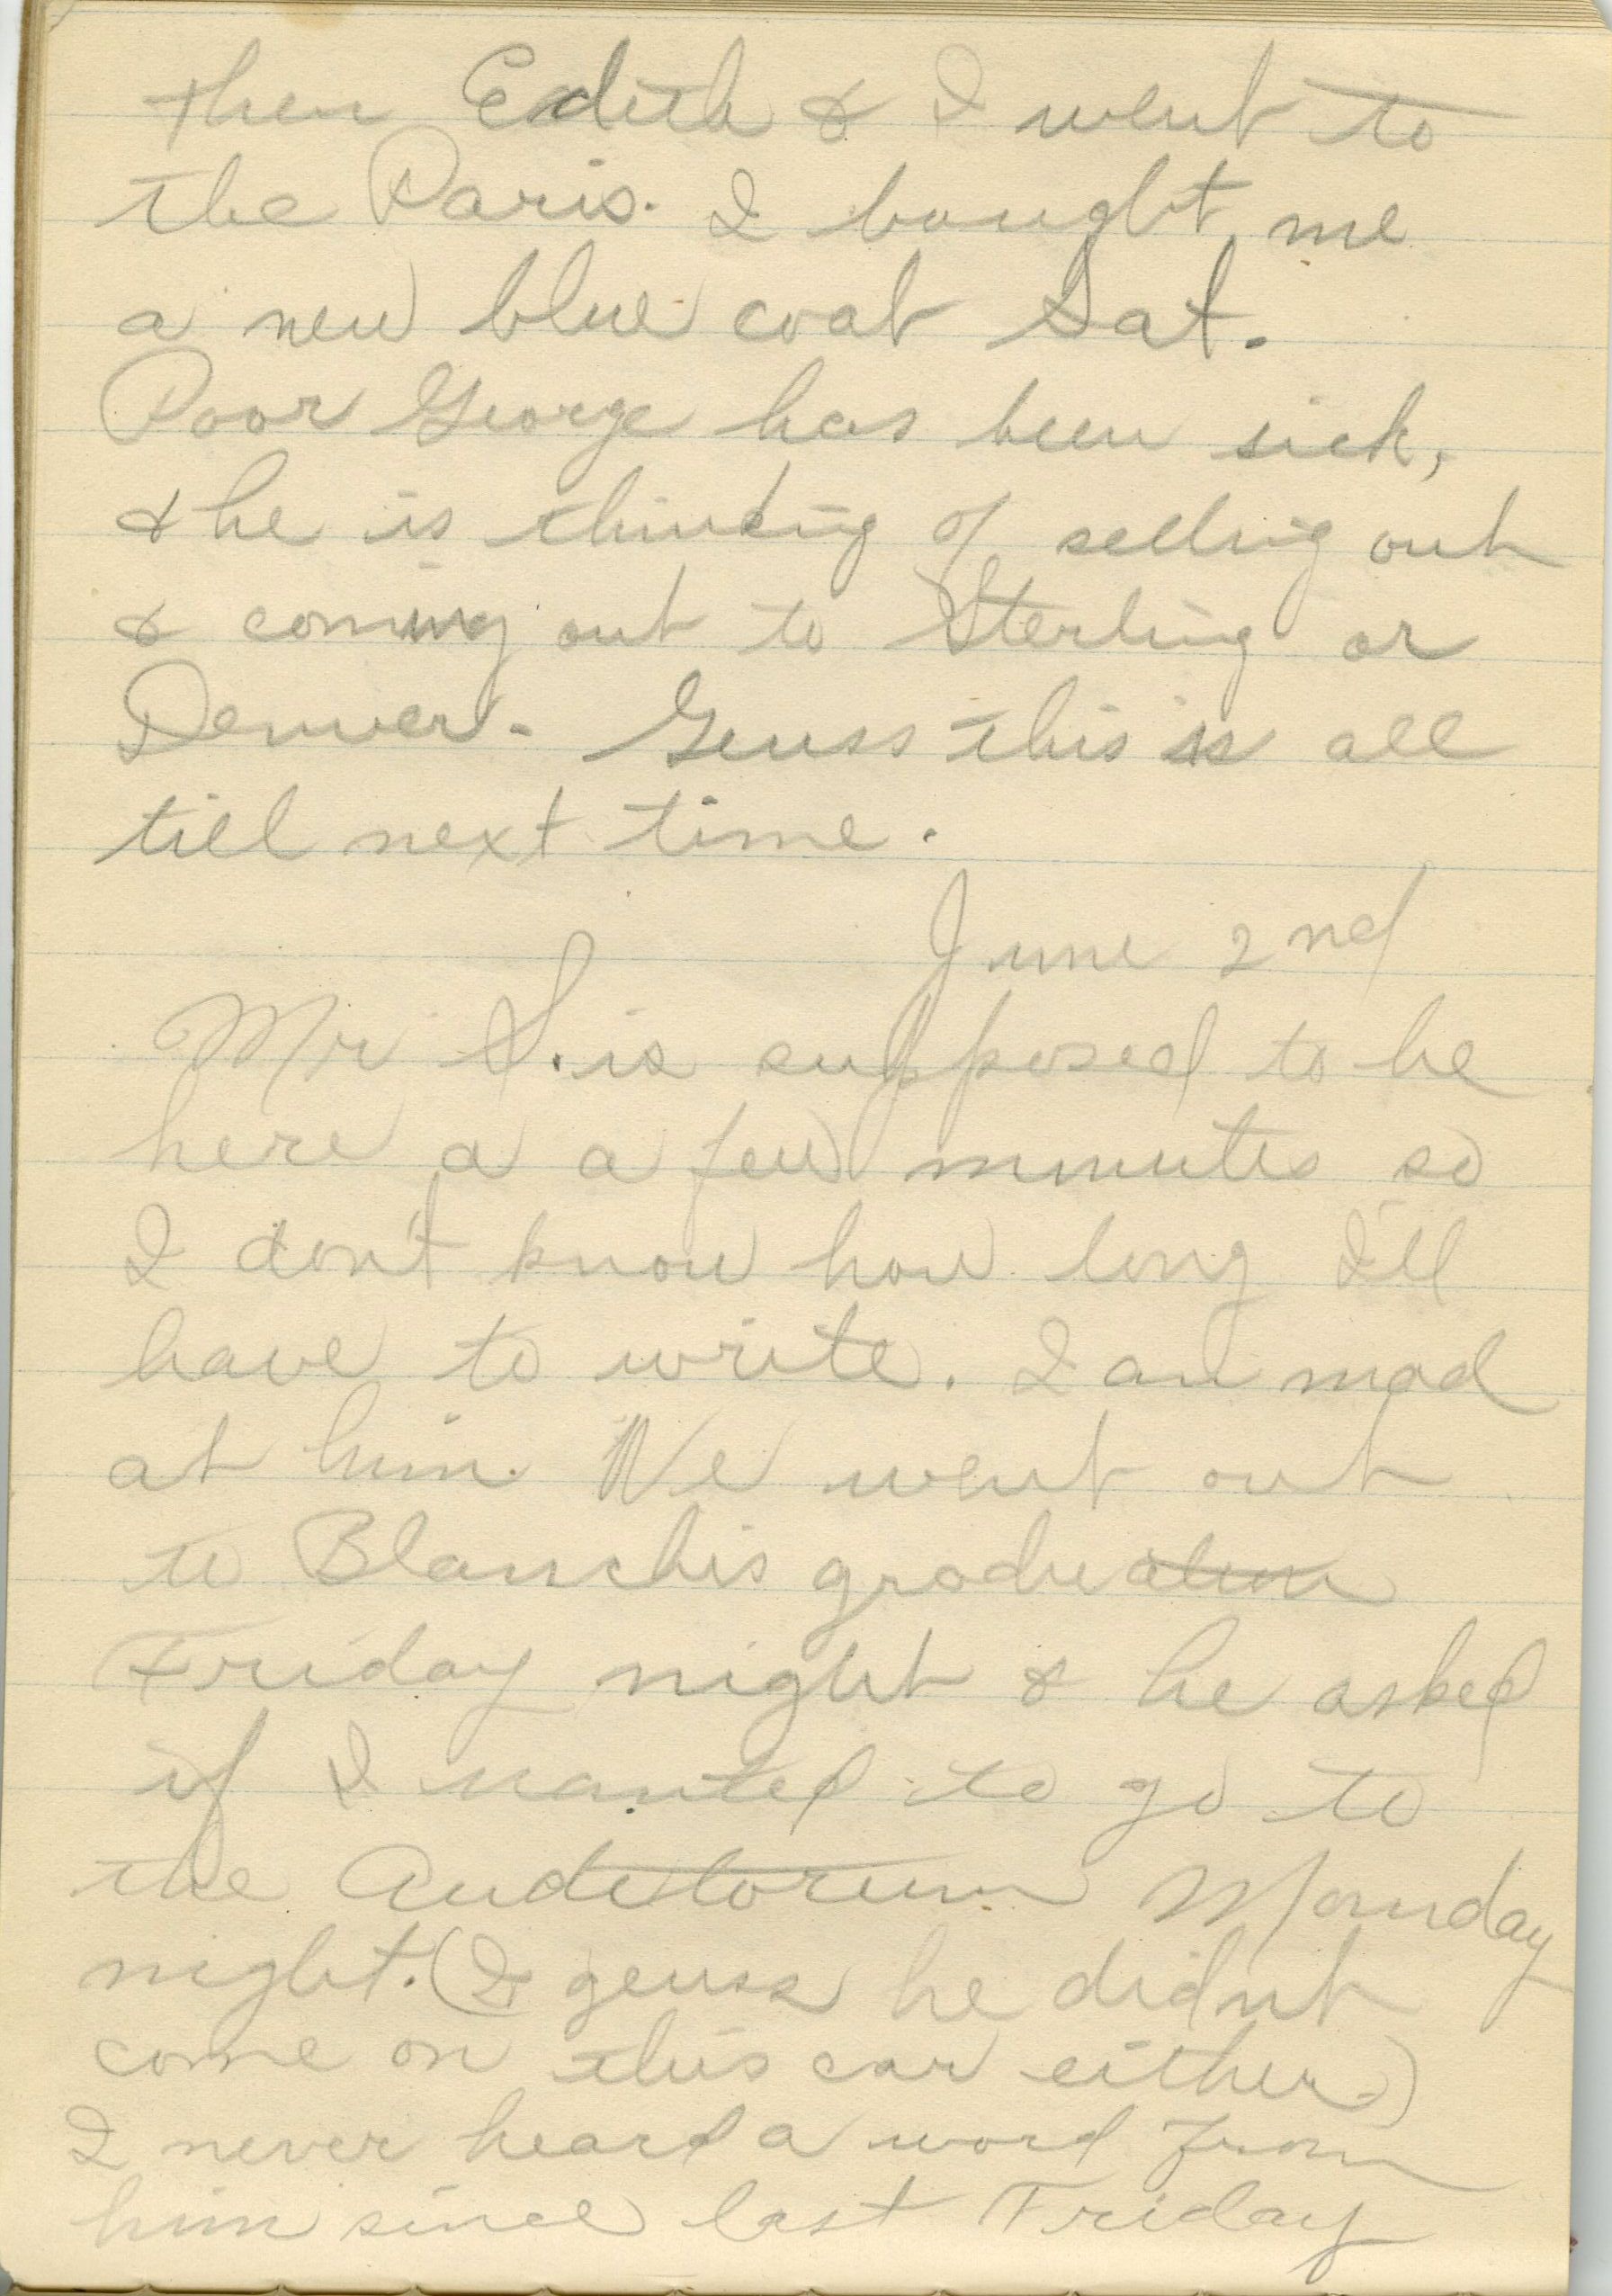 then Edith & I went to
the Paris. I bought me
a new blue coat Sat.
Poor George has been sick,
& he is thinking of selling out
& coming out to Sterling or
Denver. Geuss this is all
till next time.
June 2nd
Mr S. is supposed to be
here a a few minutes so
I don't know how long I'll
have to write. I am mad
at him. We went out
to Blanch's graduation
Friday night & he asked
if I wanted to go to
the Auditorium Monday
night. (I geuss he didn't
come on this car either)
I never heard a word from
him since last Friday